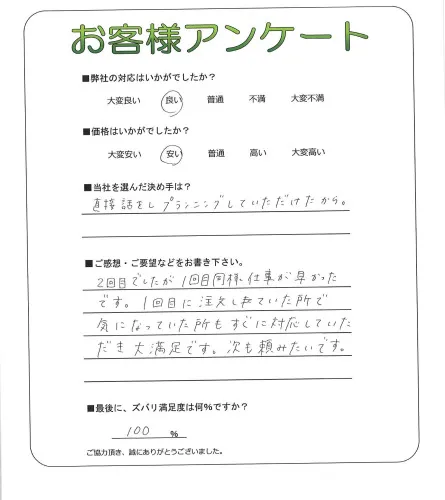 お客様アンケート
■弊社の対応はいかがでしたか？
大変良い 良い 普通 不満 大変不満
■価格はいかがでしたか？
大変安い 安い 普通 高い 大変高い
■当社を選んだ決め手は？
直接話をしプランニングしていただけたから。
■ご感想・ご要望などをお書き下さい。
2回目でしたが1回目同様、仕事が早かった
です。1回目に注文していた所で
気になっていた所もすぐに対応していた
だき大満足です。次も頼みたいです。
■最後に、ズバリ満足度は何%ですか？
100 %
ご協力頂き、誠にありがとうございました。